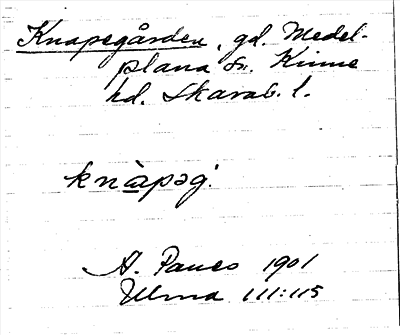 Knapegården, gd. Medel-
plana sn. Kinne
hd. Skarab. l.
knàpəg.
A. Paues 1901
Ulma 111:115